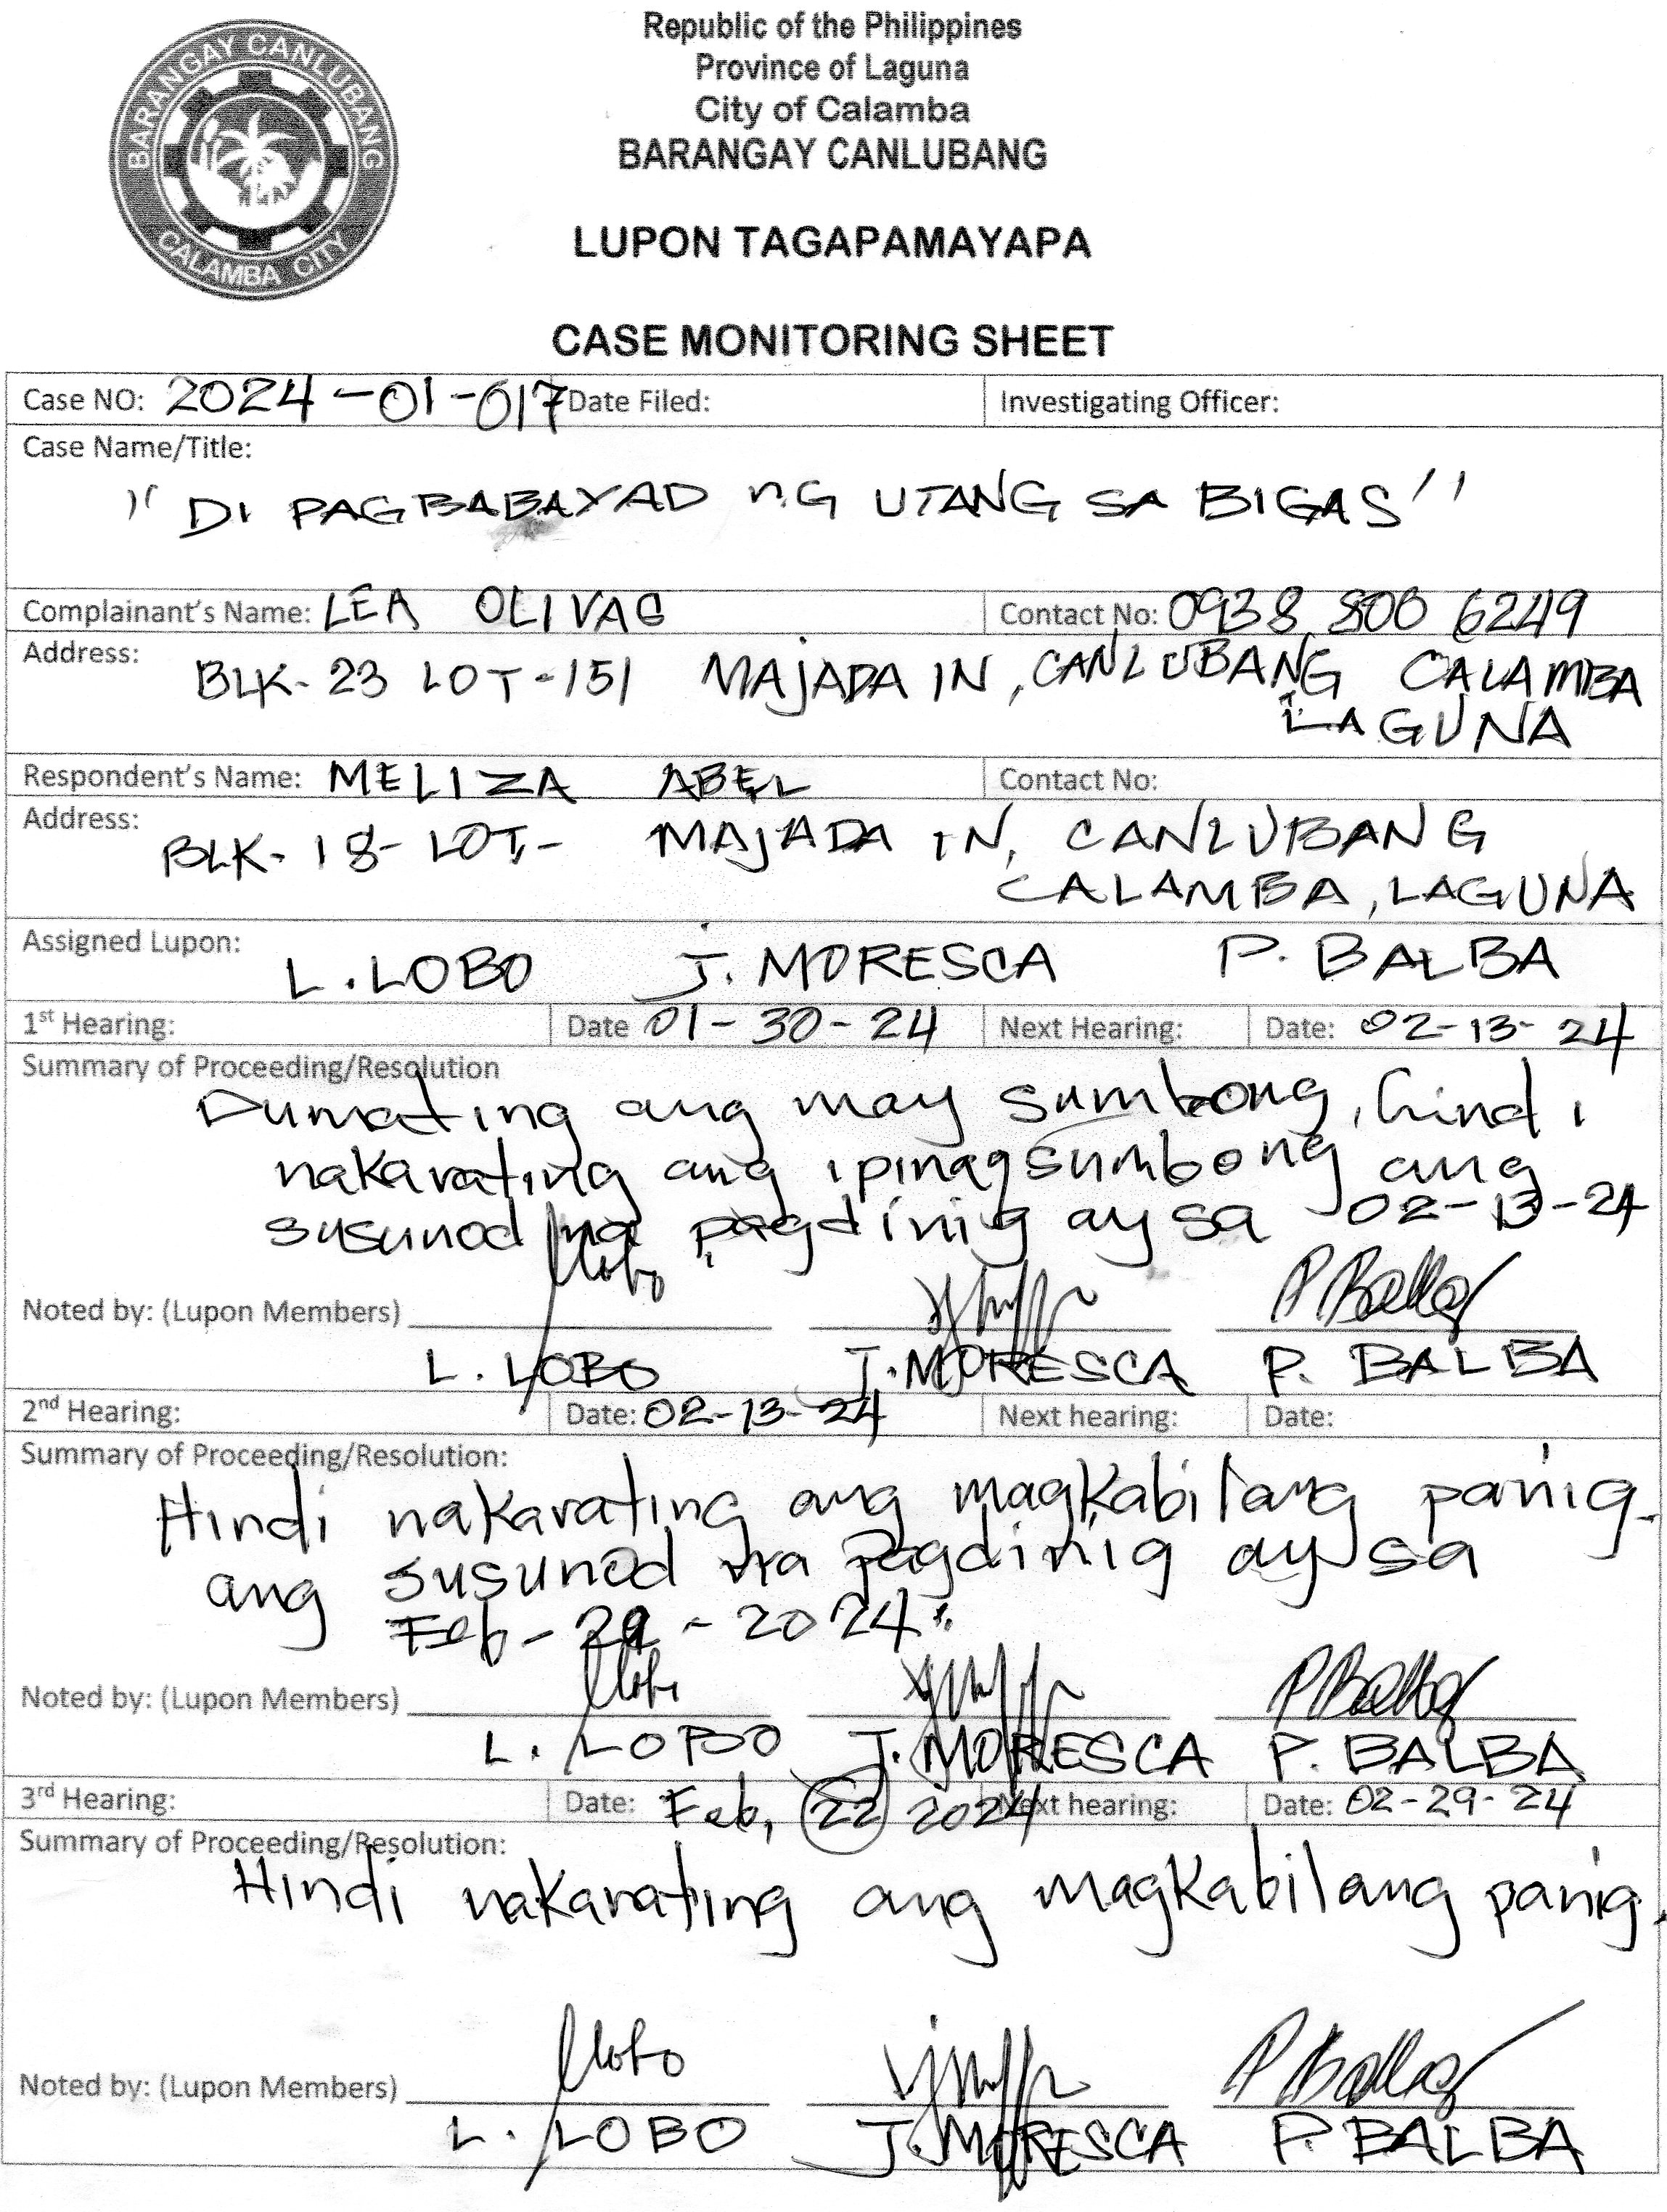 BARANGAY CANLUBANG
CALAMBA CITY
Republic of the Philippines
Province of Laguna
City of Calamba
BARANGAY CANLUBANG
LUPON TAGAPAMAYAPA
CASE MONITORING SHEET
Case NO: 2024-01-017 Date Filed: Investigating Officer:
Case Name/Title:
" DI PAGBABAYAD nG UTANG SA BIGAS "
Complainant's Name: LEA OLIVAS Contact No: 0938 800 6249
Address: BLK- 23 LOT-151 MAJADA IN, CANLUBANG CALAMBA
LAGUNA
Respondent's Name: MELIZA ABEL Contact No:
Address: BLK- 18- LOT- MAJADA IN, CANLUBANG
CALAMBA, LAGUNA
Assigned Lupon: L. LOBO J. MORESCA P. BALBA
1st Hearing: Date 01-30-24 Next Hearing: Date: 02-13-24
Summary of Proceeding/Resolution
Dumating ang may sumbong, hindi
nakarating ang ipinagsumbong ang
susunod na pagdinig ay sa 02-13-24
Noted by: (Lupon Members)
L. LOBO J. MORESCA P. BALBA
2nd Hearing: Date: 02-13-24 Next hearing: Date:
Summary of Proceeding/Resolution:
Hindi nakarating ang magkabilang panig.
ang susunod na pagdinig ay sa
Feb- - 2024.
Noted by: (Lupon Members)
L. LOBO J. MORESCA P. BALBA
3rd Hearing: Date: Feb, 22 2024 Next hearing: Date: 02-29-24
Summary of Proceeding/Resolution:
Hindi nakarating ang magkabilang panig.
Noted by: (Lupon Members)
L. LOBO J. MORESCA P. BALBA